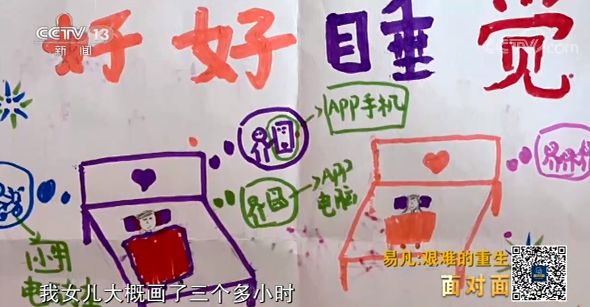 CCTV 13
新闻
好好睡觉
CCTV.com
APP手机
APP
电脑
小思
电
易凡:艰难的重生
面对面
我女儿大概画了三个多小时